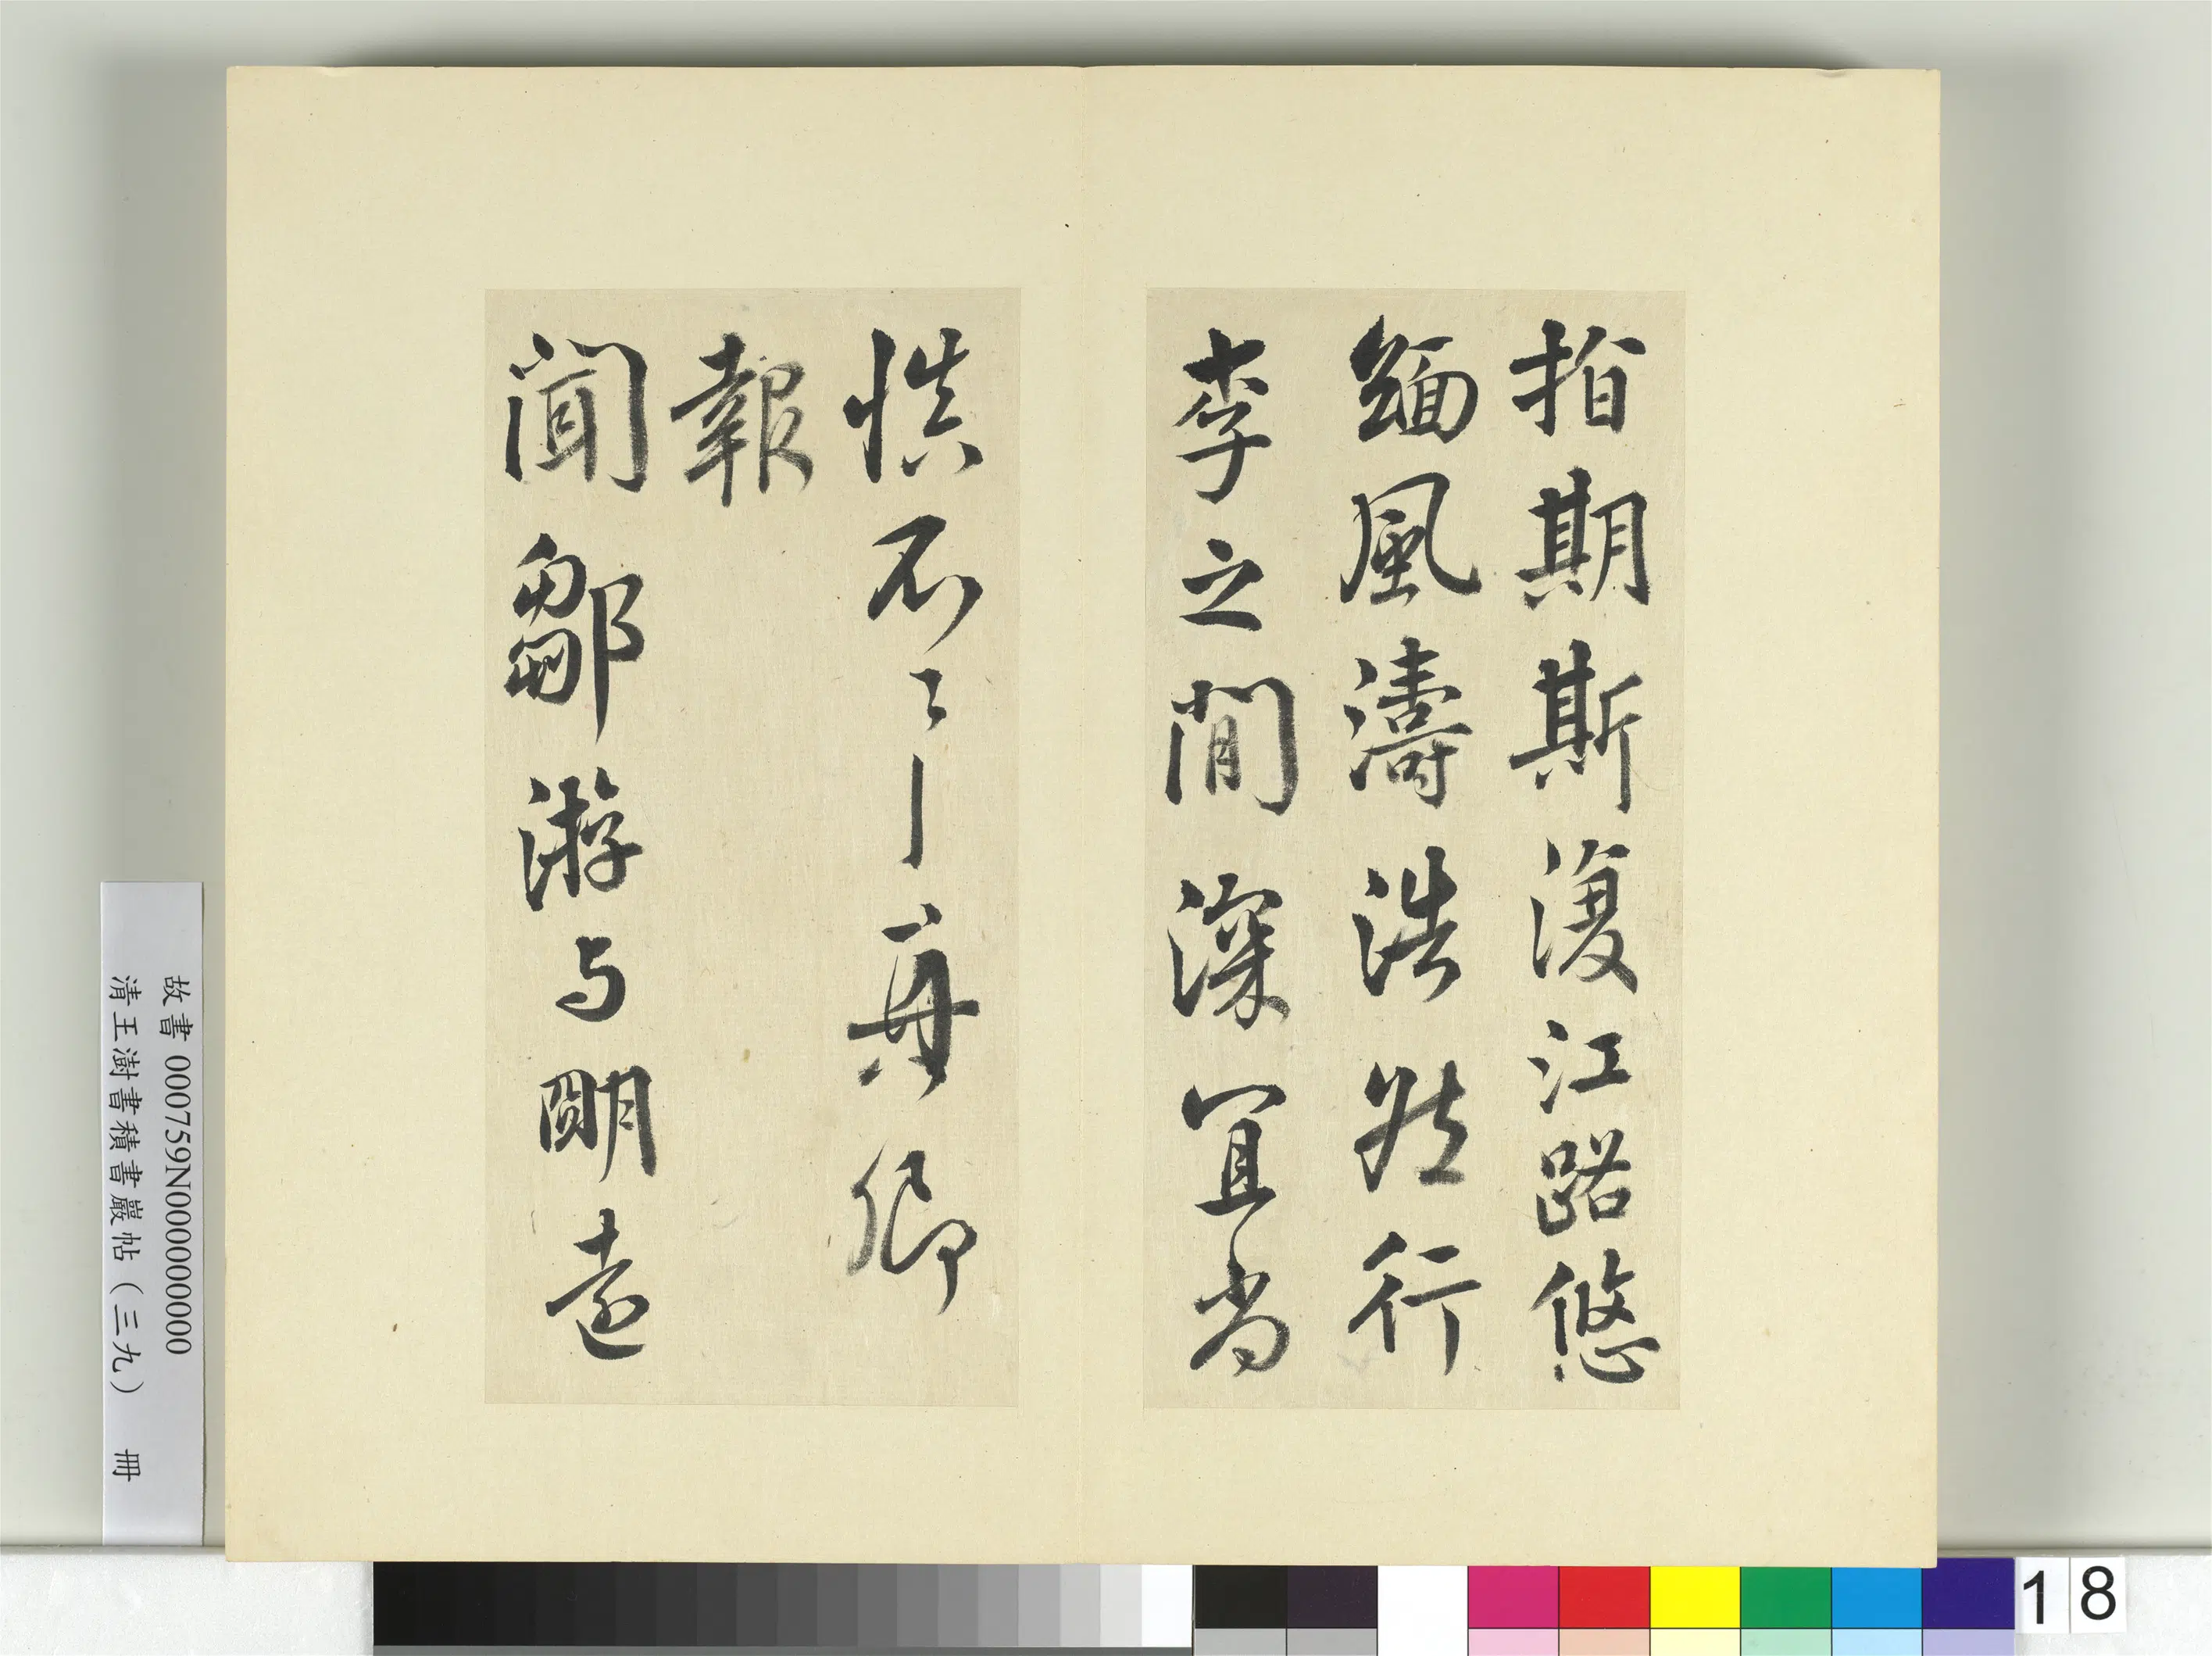 指期斯復江路悠
緬風濤浩然行
李之間深宜尚
慎不一一耳卿
報
聞鄒游与明遠
故書 000759N000000000
清王澍書積書巖帖（三九） 冊
18